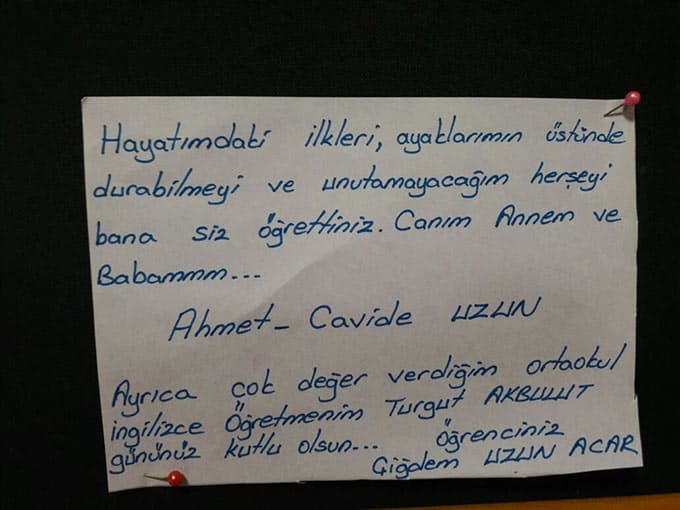 Hayatımdaki ilkleri, ayaklarımın üstünde
durabilmeyi ve unutamayacağım herşeyi
bana siz öğrettiniz. Canım Annem ve
Babammm...
Ahmet - Cavide UZUN
Ayrıca çok değer verdiğim ortaokul
ingilizce Öğretmenim Turgut AKBULUT
gününüz kutlu olsun... öğrenciniz
Çiğdem UZUN ACAR